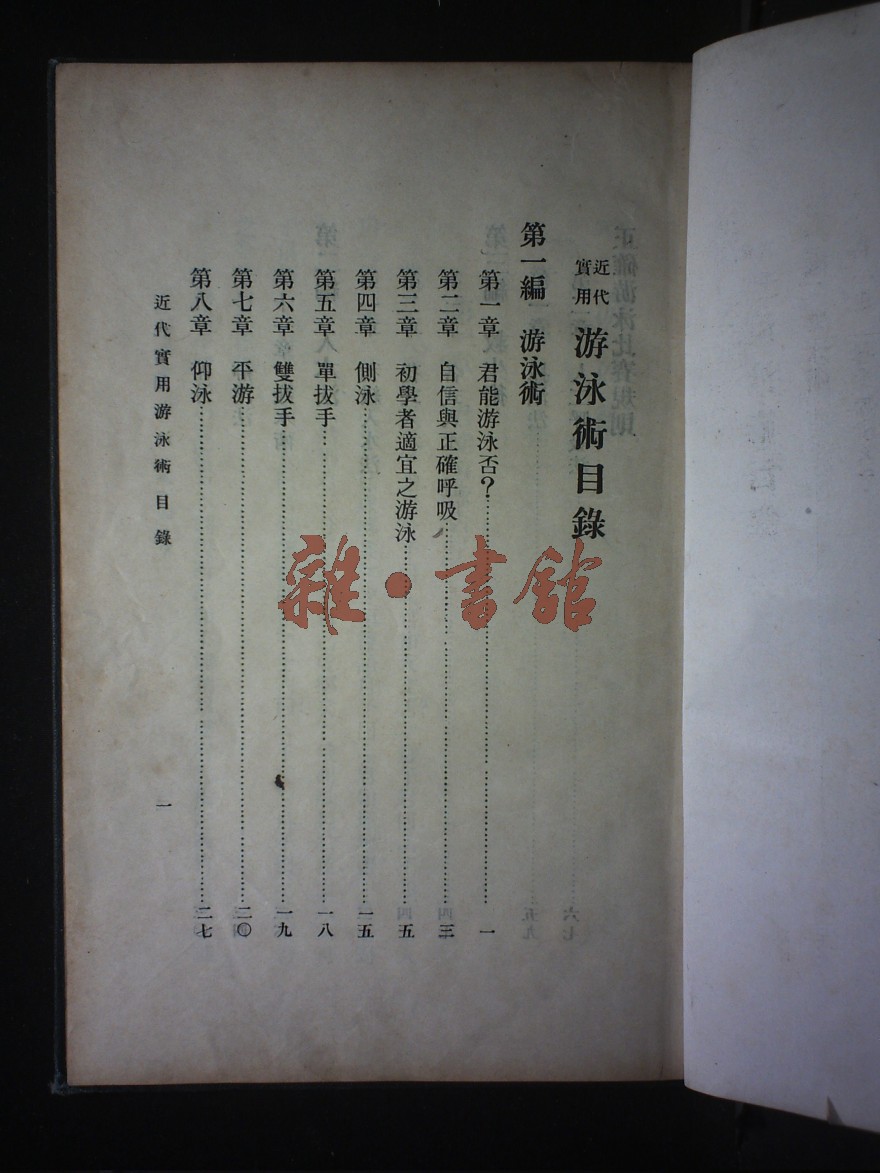 近代實用 游泳術目錄
第一編 游泳術
第一章 君能游泳否？……一
第二章 自信與正確呼吸……三
第三章 初學者適宜之游泳……五
第四章 側泳……一五
第五章 單拔手……一八
第六章 雙拔手……一九
第七章 平游……二〇
第八章 仰泳……二七
近代實用游泳術 目錄
一
雜·書館